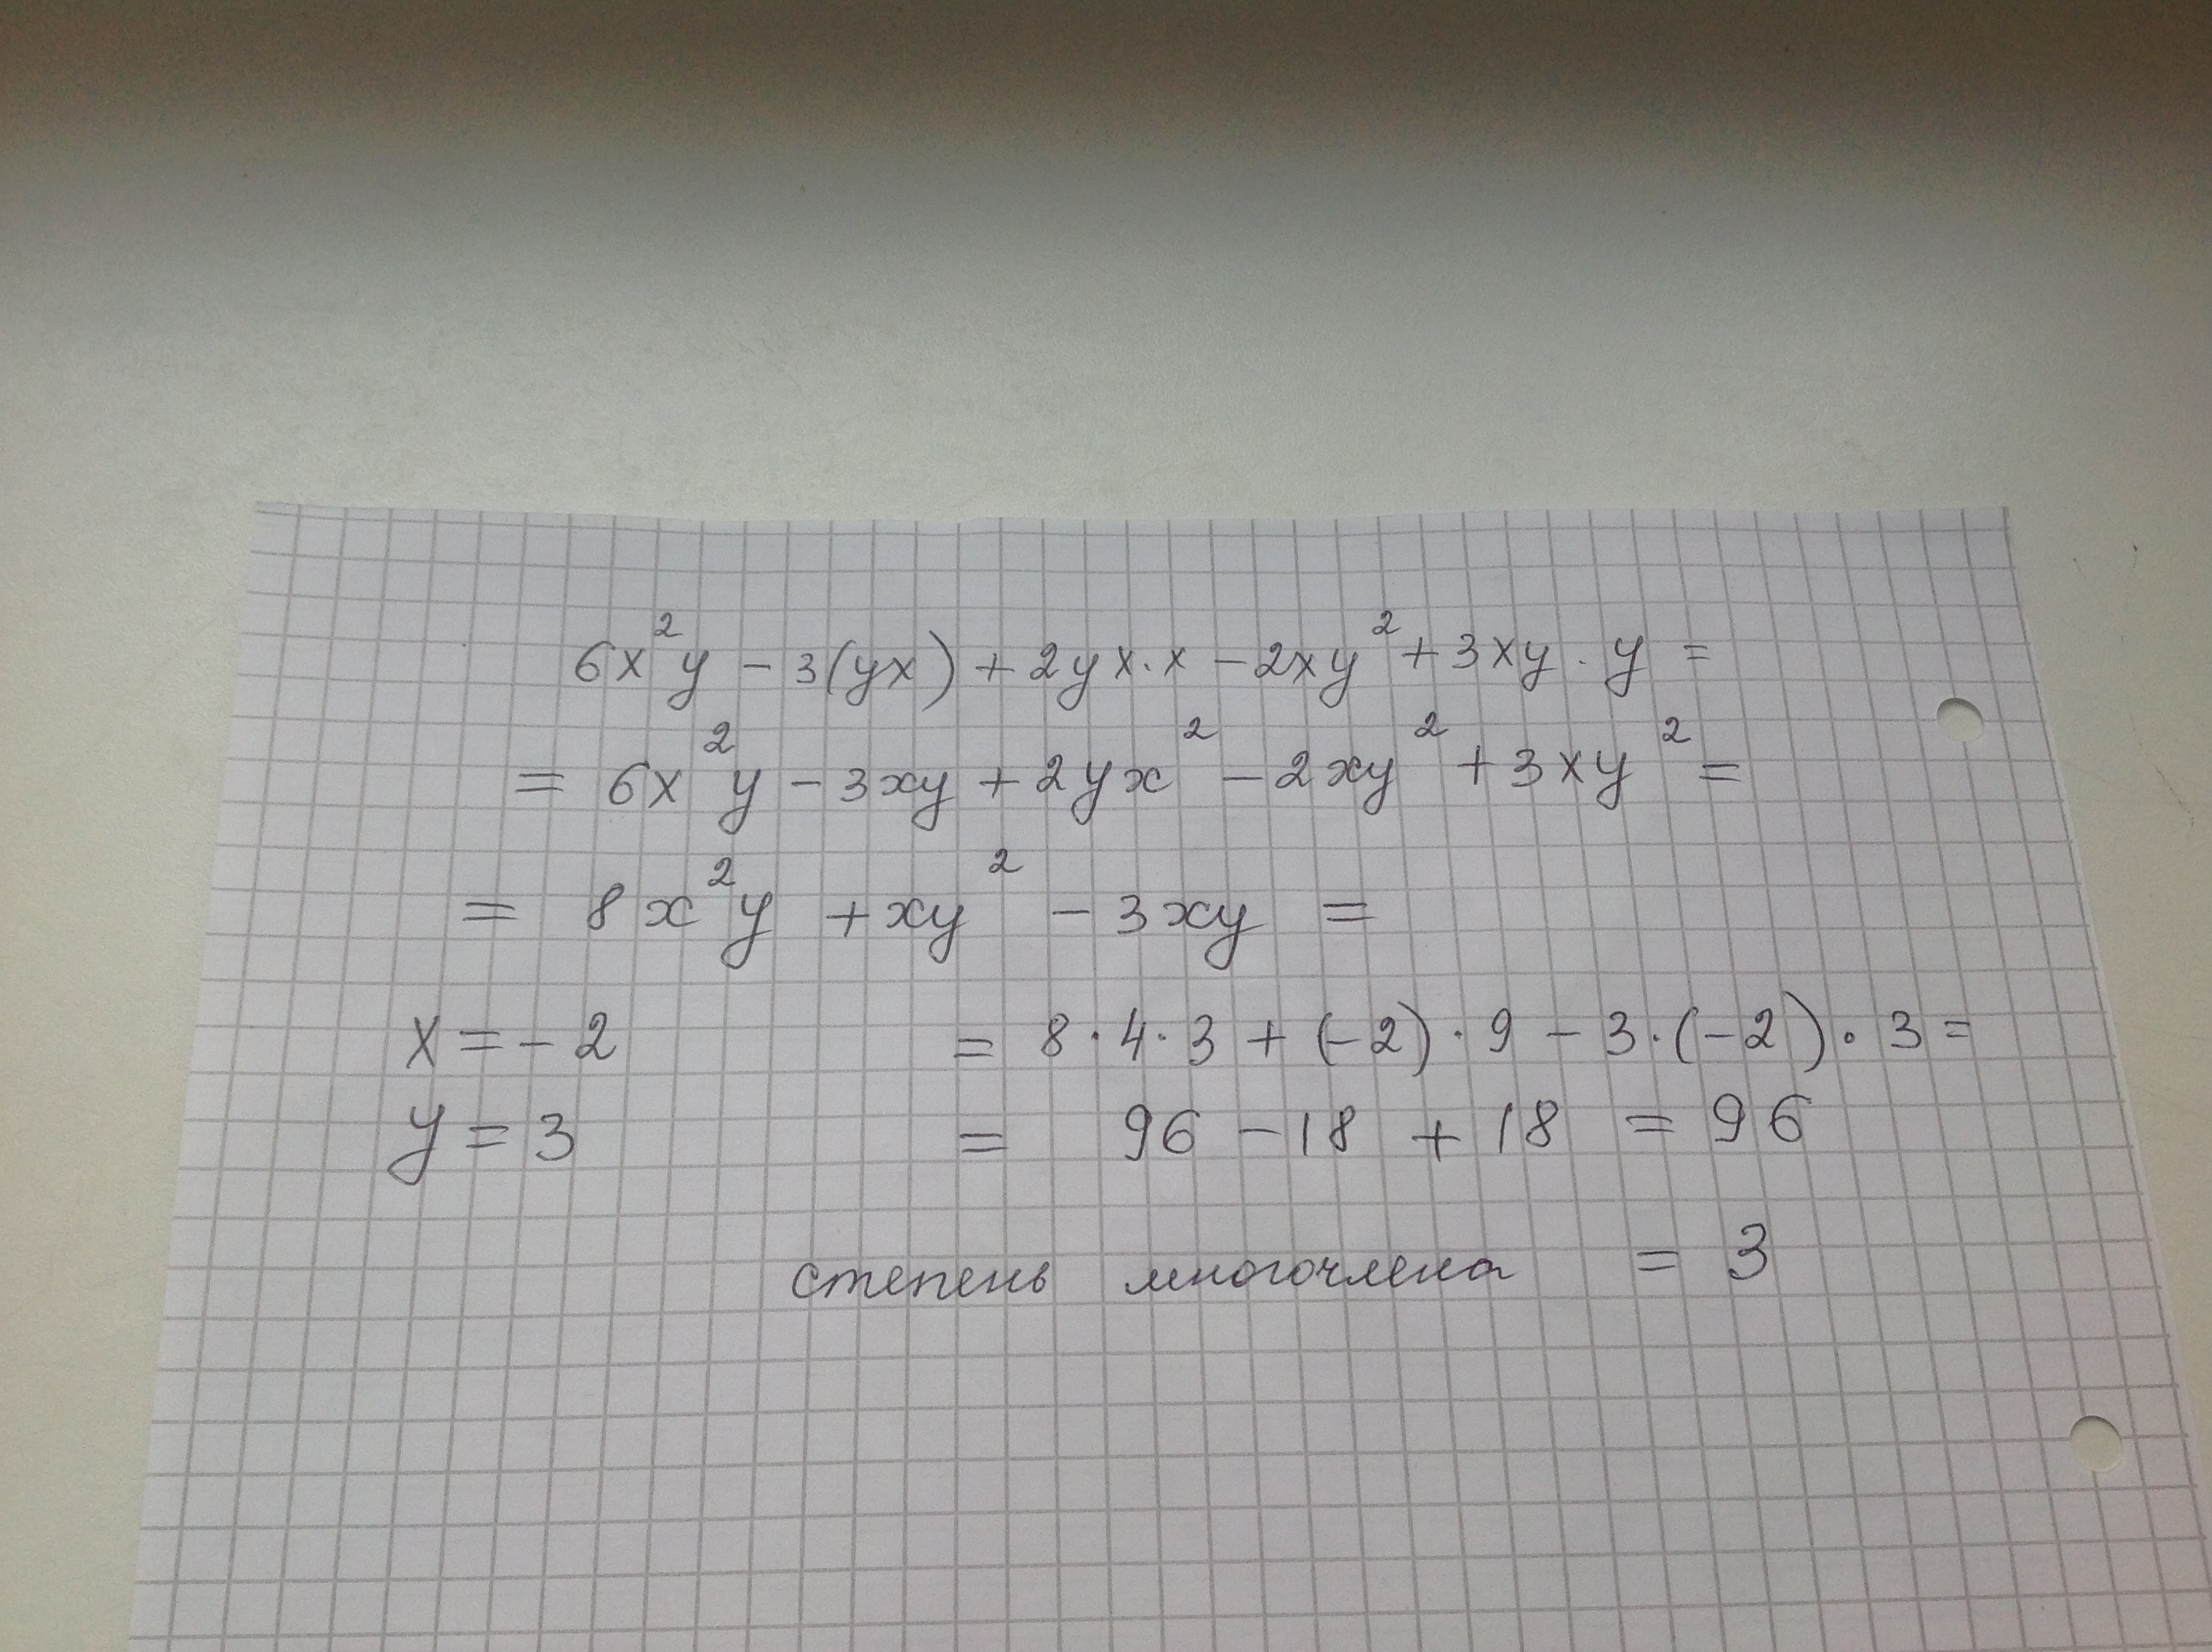 6x²y - 3(yx) + 2yx·x - 2xy² + 3xy·y =
= 6x²y - 3xy + 2yx² - 2xy² + 3xy² =
= 8x²y + xy² - 3xy =
x = -2 = 8·4·3 + (-2)·9 - 3·(-2)·3 =
y = 3 = 96 - 18 + 18 = 96
степень многочлена = 3